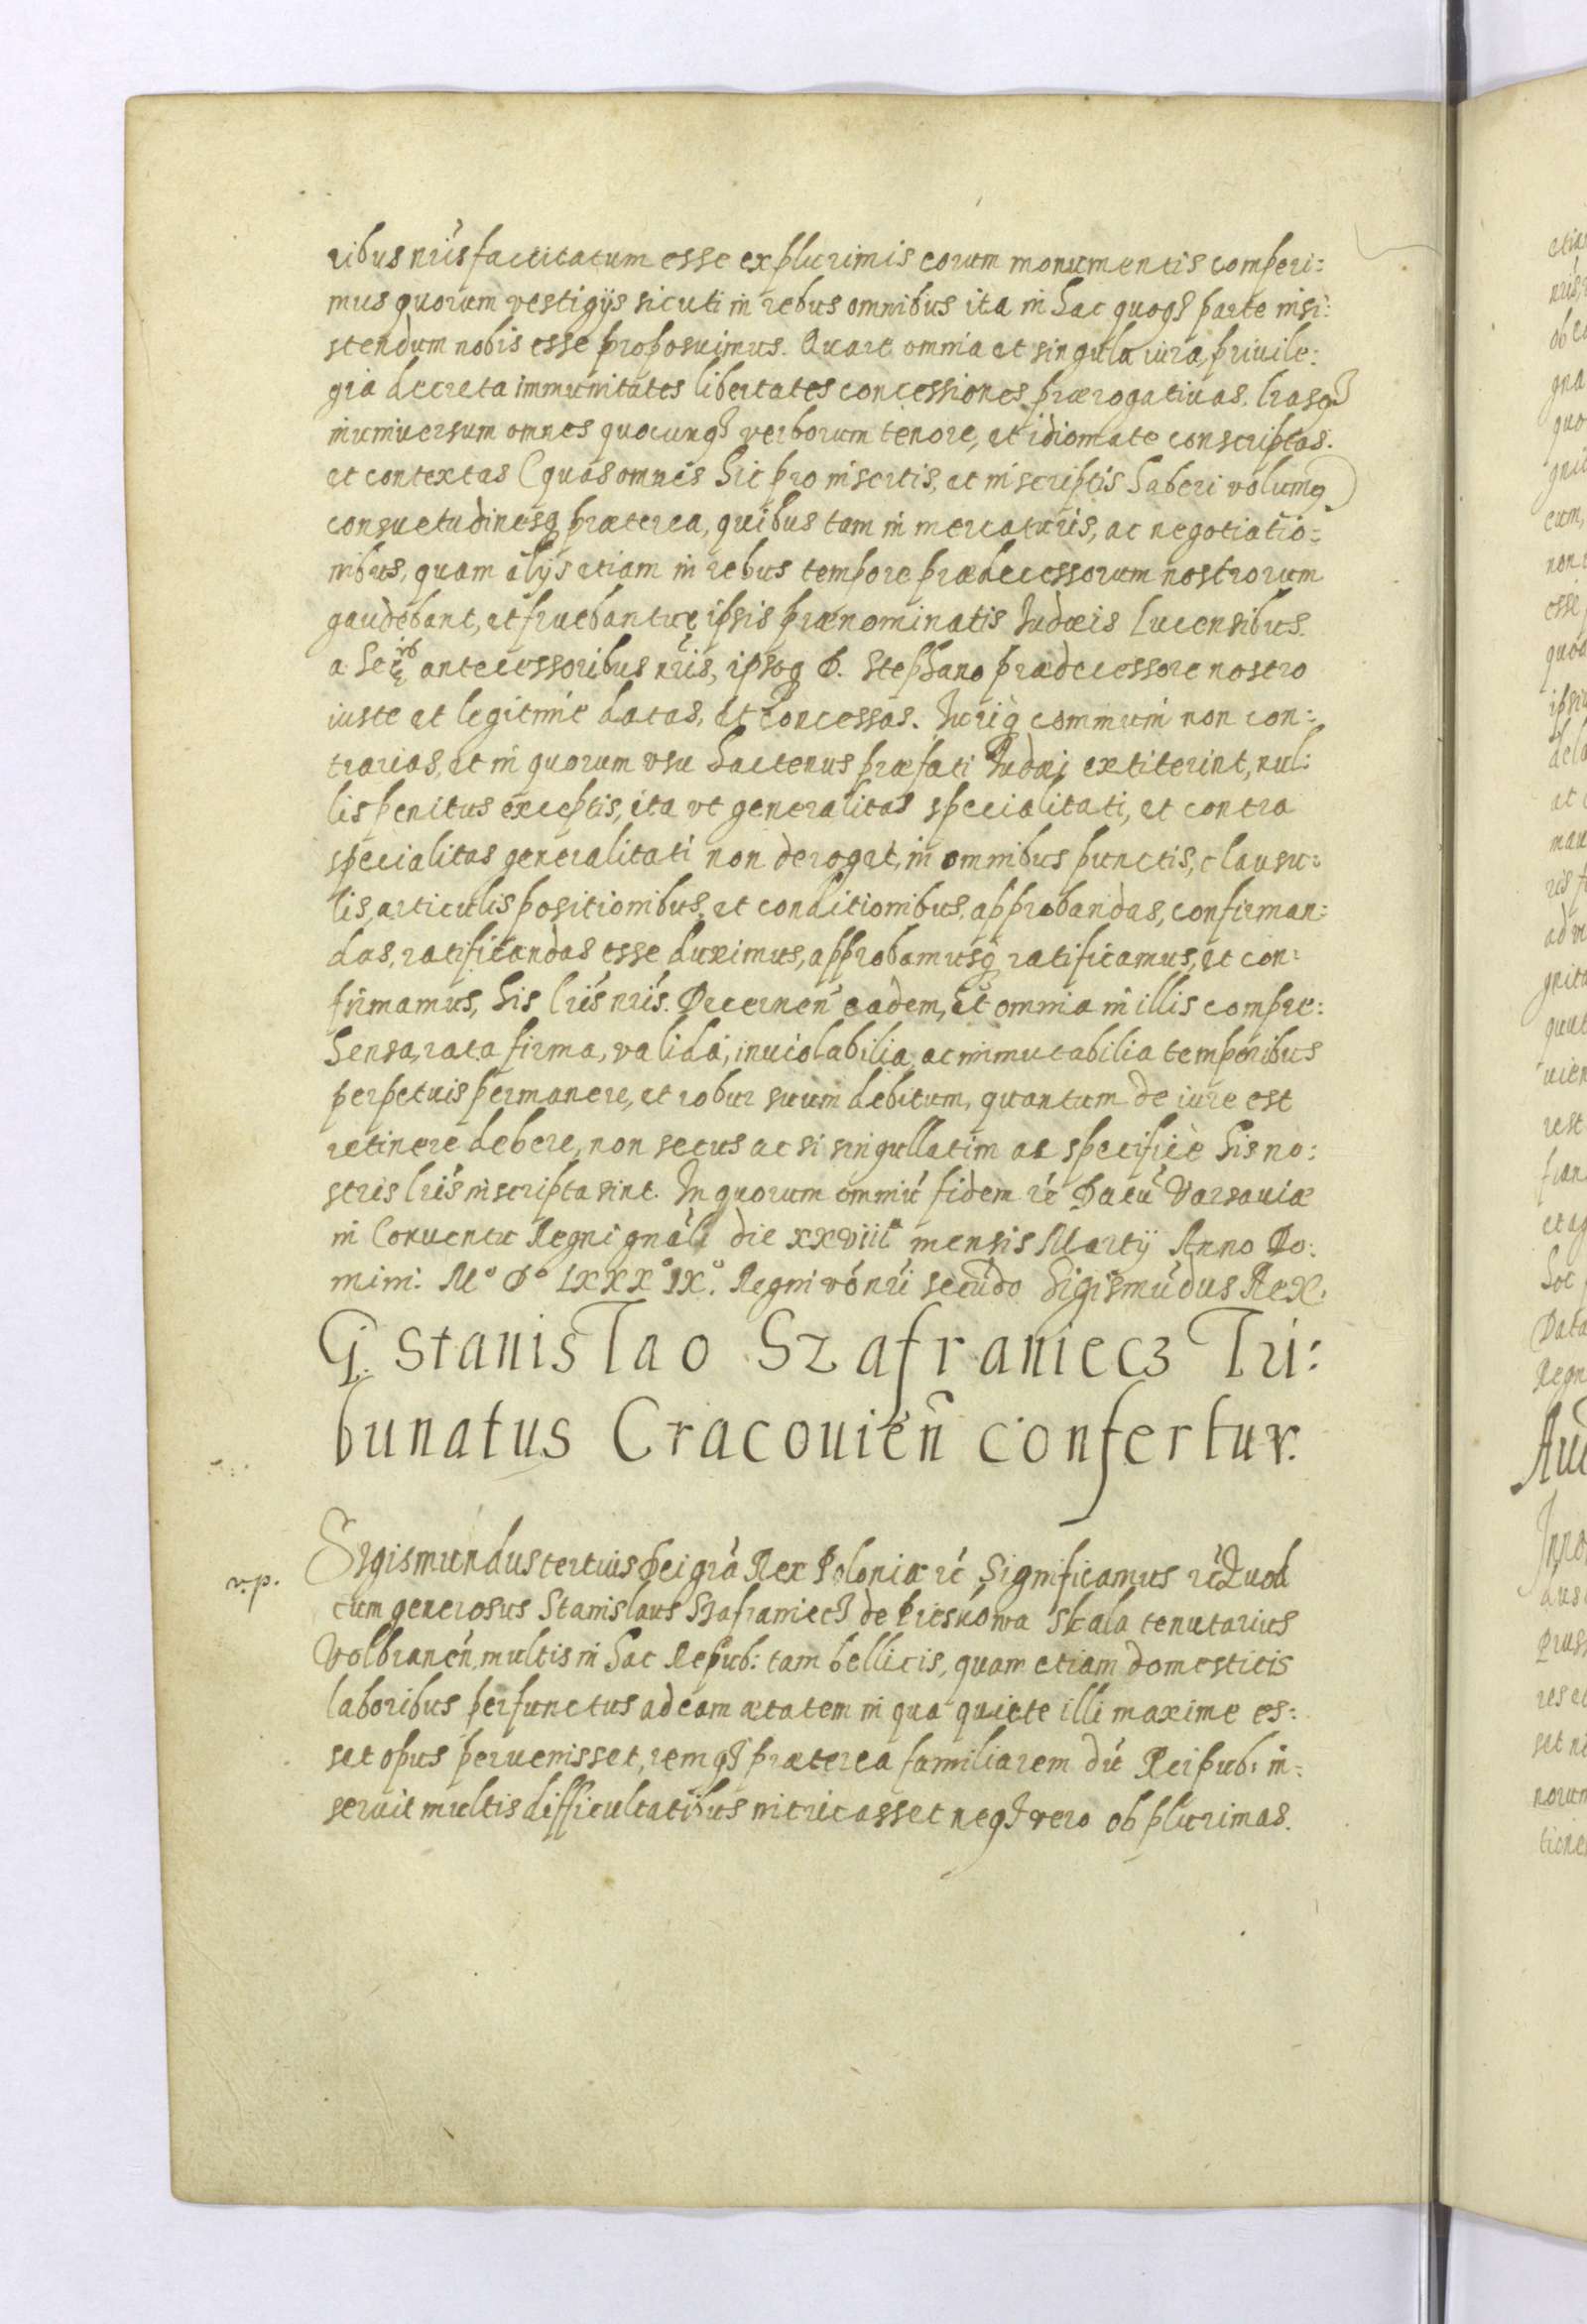 ribus nr̃is factitatum esse ex plurimis eorum monumentis comperi:
mus quorum vestigijs sicuti in rebus omnibus ita in hac quoq3 parte insi:
stendum nobis esse proposuimus. Quare omnia et singula iura, priuile:
gia decreta immunitates libertates concessiones prærogatiuas. lr̃asq3
in uniuersum omnes quocunq3 verborum tenore, et idiomate conscriptas.
et contextas (quas omnes hic pro insertis, et inscriptis haberi volumꝯ)
consuetudinesq præterea, quibus tam in mercaturis, ac negotiatio:
nibus, quam alijs etiam in rebus tempore prædecessorum nostrorum
gaudebant, et fruebantur ipsis prænominatis Iudæis Lucensibus.
a Se antecessoribus nr̃is, ipsoq D. Stephano prædecessore nostro
iuste et legitime datas, et concessas. Iuriq communi non con:
trarias, et in quorum vsu hactenus præfati Iudæi extiterint, nul:
lis penitus exceptis, ita vt generalitas specialitati, et contra
specialitas generalitati non deroget, in omnibus punctis, clausu:
lis, articulis positionibus, et conditionibus, approbandas, confirman:
das, ratificandas esse duximus, approbamusq ratificamus, et con:
firmamus, his lr̃is nr̃is. Decernen̄ eadem, et omnia in illis compre:
hensa, rata firma, valida, inuiolabilia, ac immutabilia temporibus
perpetuis permanere, et robur suum debitum, quantum de iure est
retinere debere, non secus ac si singullatim ac specifice his no:
stris lr̃is inscripta sint. In quorum omniū fidem rc̃ Datū Varsauiæ
in Conuentu Regni gnãli die xxviiiª mensis Martij Anno Do:
mini. Mº Dº LXXXº IXº. Regni vō nr̃i secūdo Sigismūdus Rex.
G. Stanislao Szafraniecz Tri:
bunatus Cracouien̄ confertur.
v.p.
Sigismundus tertius Dei grã Rex Poloniæ rc̃ Significamus rc̃ Quod
cum generosus Stanislaus Szafraniecz de Pieskowa Skala tenutarius
Volbranen̄, multis in hac Repub: tam bellicis, quam etiam domesticis
laboribus perfunctus ad eam ætatem in qua quiete illi maxime es:
set opus peruenisset, remq3 præterea familiarem dū Reipub: in:
seruit multis difficultatibus intricasset neq3 vero ob plurimas.